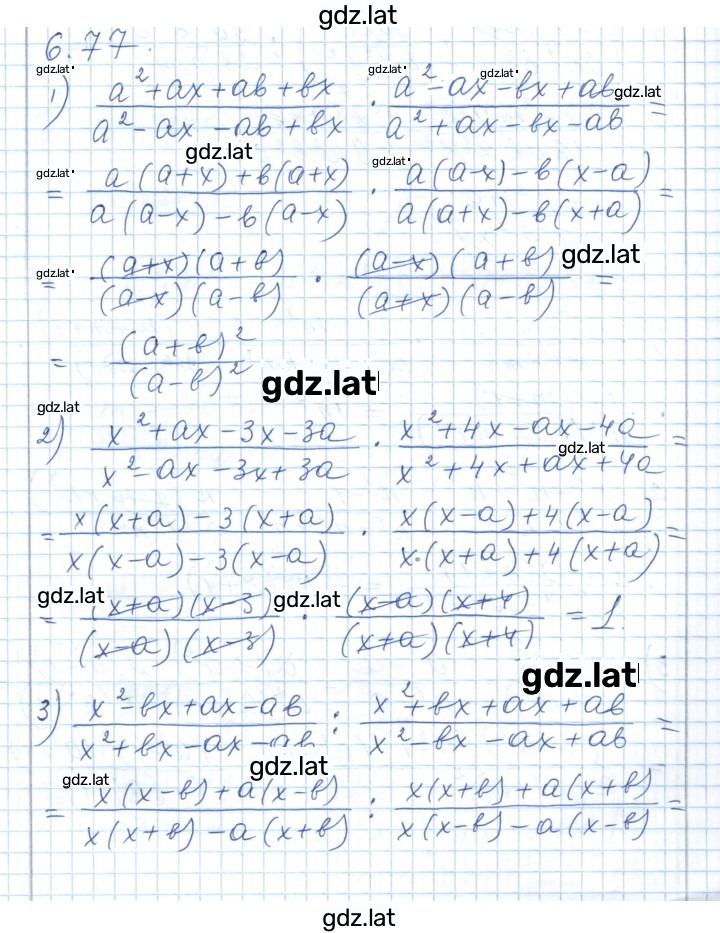 gdz.lat
6.77.
gdz.lat gdz.lat gdz.lat
1) (a² + ax + ab + bx)/(a² - ax - ab + bx) · (a² - ax - bx + ab)/(a² + ax - bx - ab) = gdz.lat
gdz.lat gdz.lat gdz.lat
= (a(a+x) + b(a+x))/(a(a-x) - b(a-x)) · (a(a-x) - b(x-a))/(a(a+x) - b(x+a)) =
gdz.lat gdz.lat
= ((a+x)(a+b))/((a-x)(a-b)) · ((a-x)(a+b))/((a+x)(a-b)) =
= (a+b)²/(a-b)²
gdz.lat
gdz.lat
2) (x² + ax - 3x - 3a)/(x² - ax - 3x + 3a) · (x² + 4x - ax - 4a)/(x² + 4x + ax + 4a) =
gdz.lat
= (x(x+a) - 3(x+a))/(x(x-a) - 3(x-a)) · (x(x-a) + 4(x-a))/(x·(x+a) + 4(x+a)) =
gdz.lat gdz.lat
= ((x+a)(x-3))/((x-a)(x-3)) · ((x-a)(x+4))/((x+a)(x+4)) = 1.
gdz.lat
3) (x² - bx + ax - ab)/(x² + bx - ax - ab) : (x² + bx + ax + ab)/(x² - bx - ax + ab) =
gdz.lat gdz.lat
= (x(x-b) + a(x-b))/(x(x+b) - a(x+b)) : (x(x+b) + a(x+b))/(x(x-b) - a(x-b)) =
gdz.lat